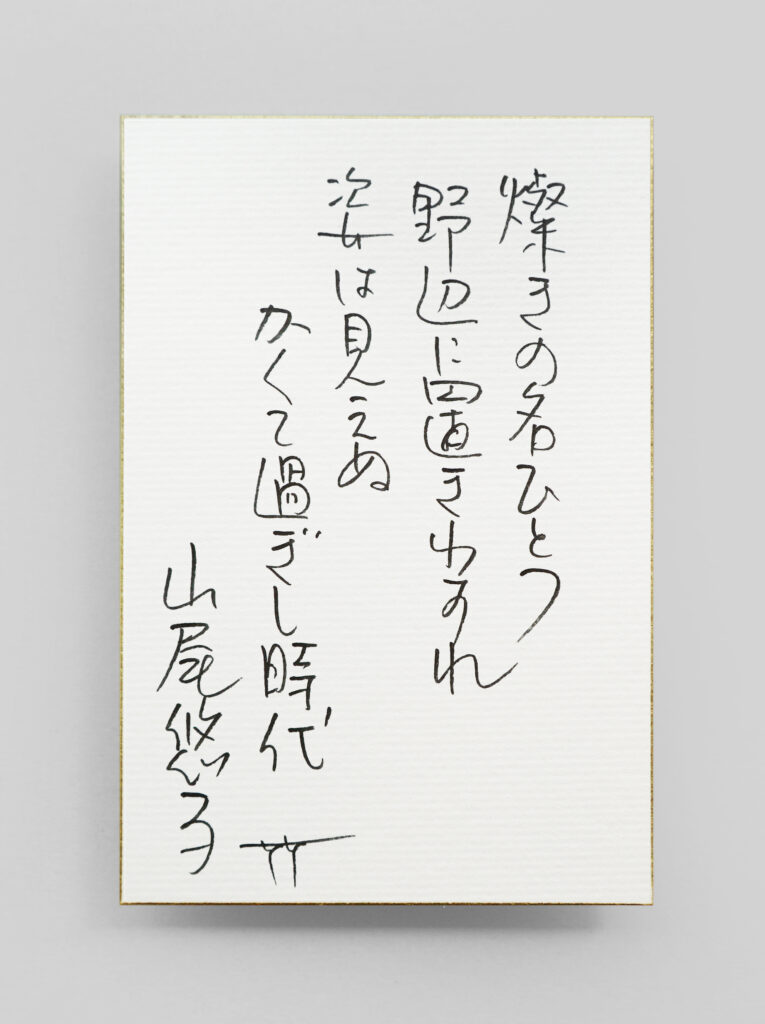 燦きの名ひとつ
野辺に置きわすれ
姿は見えぬ
かくて過ぎし時代
山尾悠子